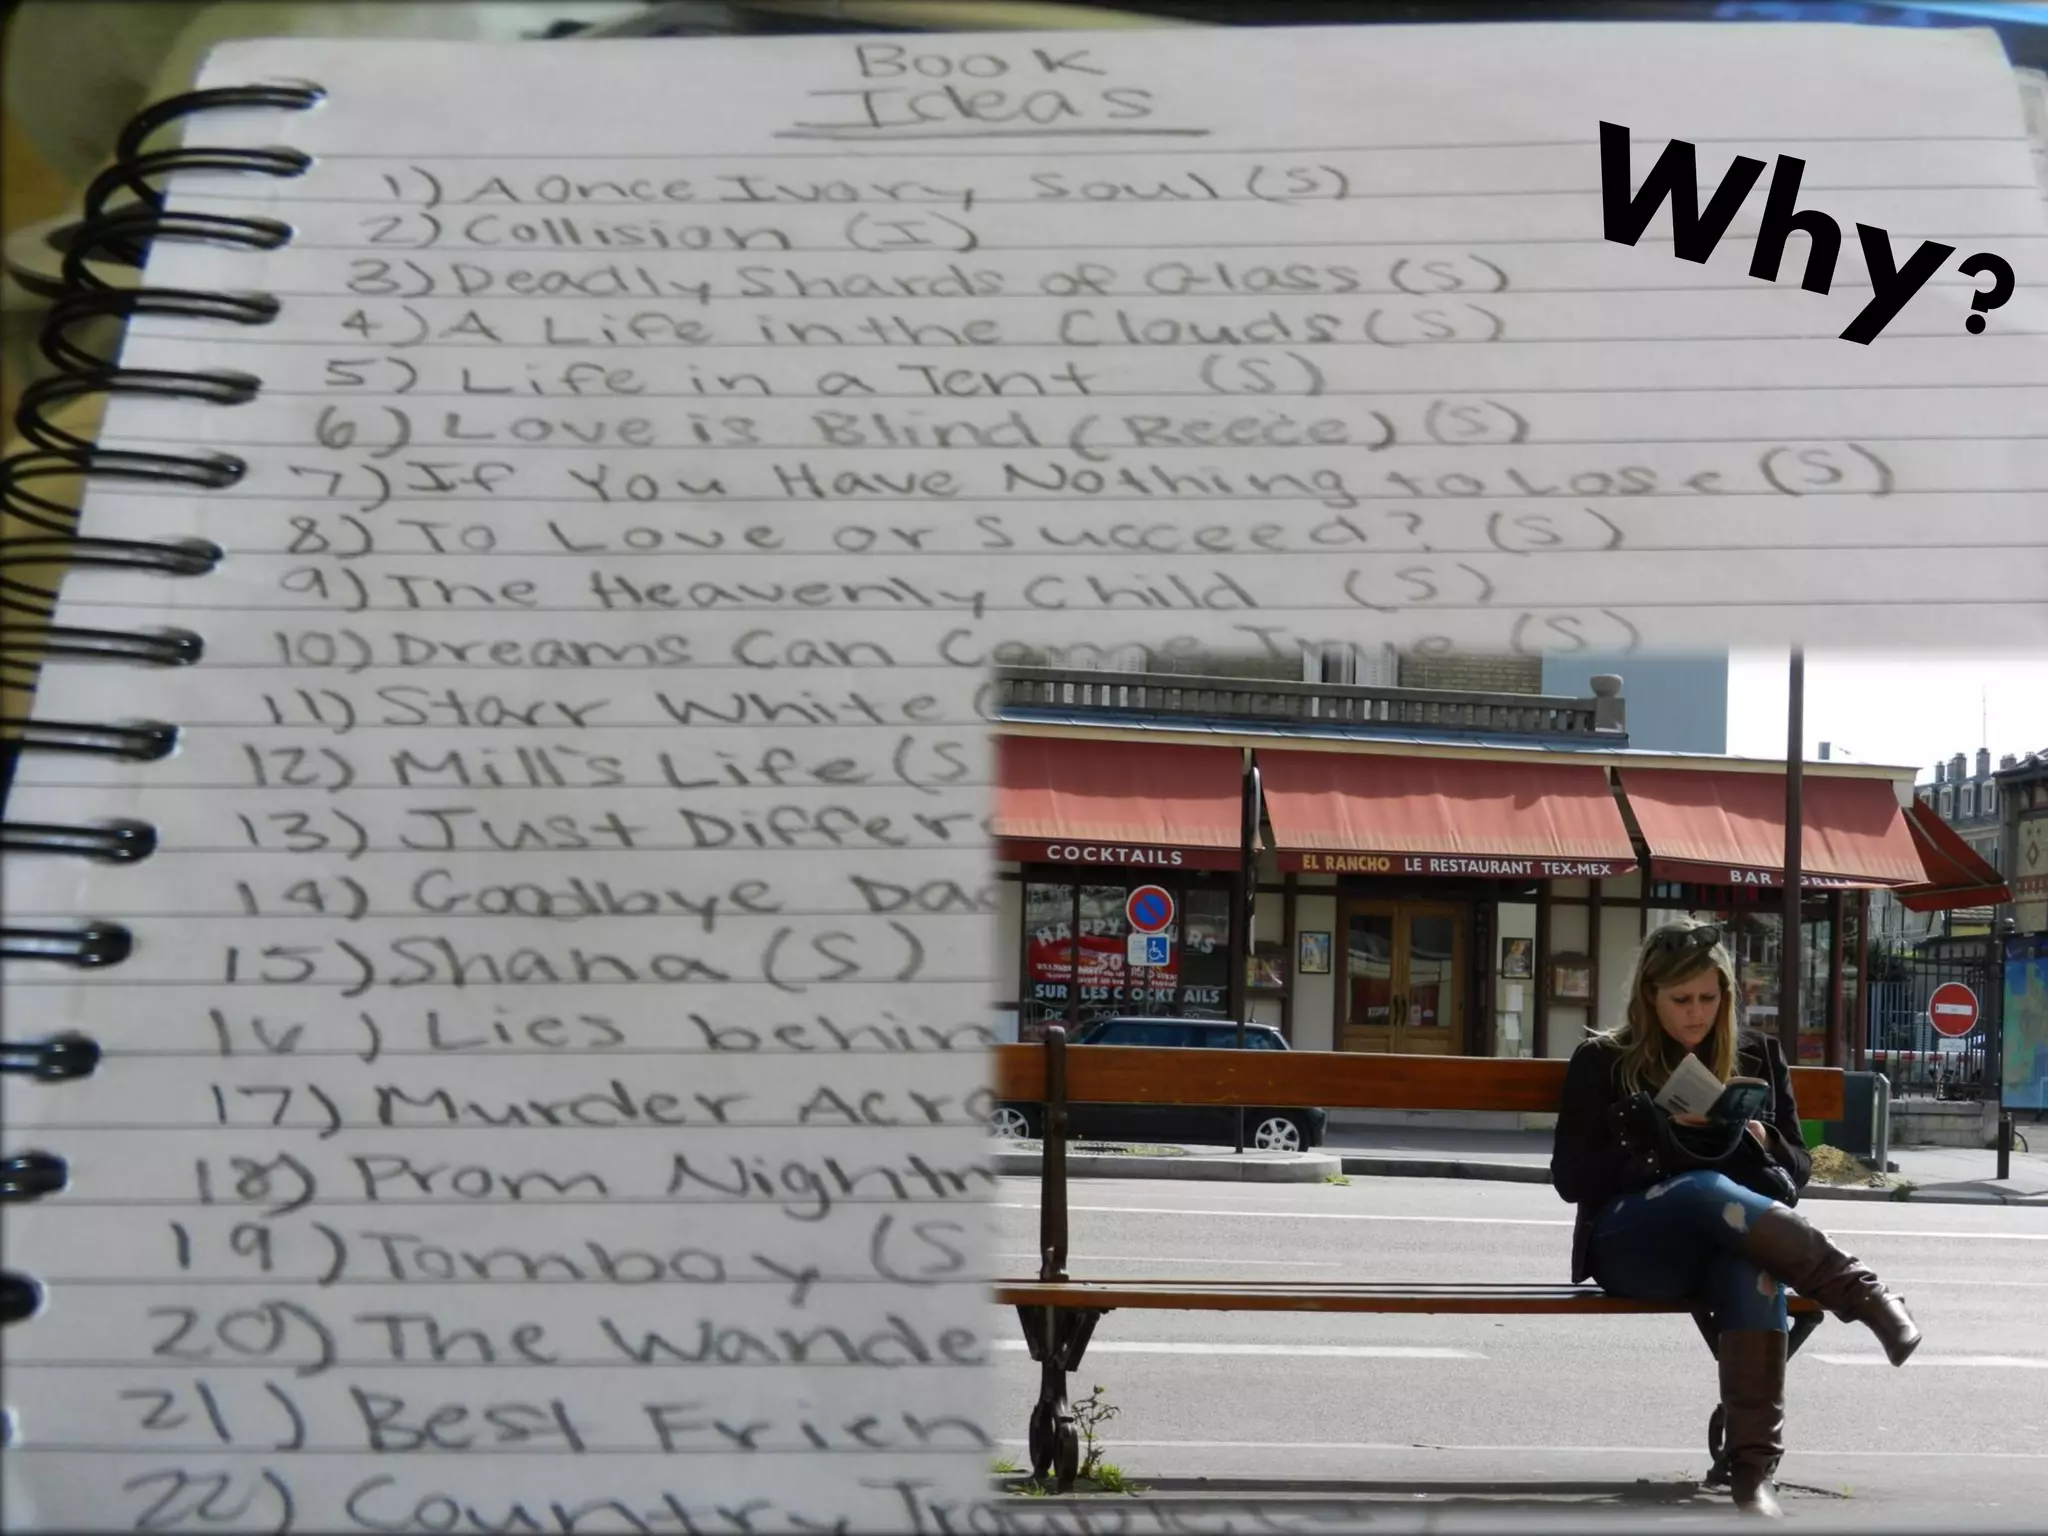 Book
Ideas
Why?
1) A Once Ivory Soul (S)
2) Collision (I)
3) Deadly Shards of Glass (S)
4) A Life in the Clouds (S)
5) Life in a Tent (S)
6) Love is Blind (Reece) (S)
7) If You Have Nothing to Lose (S)
8) To Love or Succeed? (S)
9) The Heavenly Child (S)
10) Dreams Can Come True (S)
11) Starr White (
12) Mill's Life (S
13) Just Differ
14) Goodbye Dad
15) Shana (S)
16) Lies behin
17) Murder Acro
18) Prom Nightm
19) Tomboy (S
20) The Wande
21) Best Frien
22) Country Trouble
COCKTAILS
EL RANCHO LE RESTAURANT TEX-MEX
BAR GRILL
HAPPY
50
SUR LES COCKTAILS